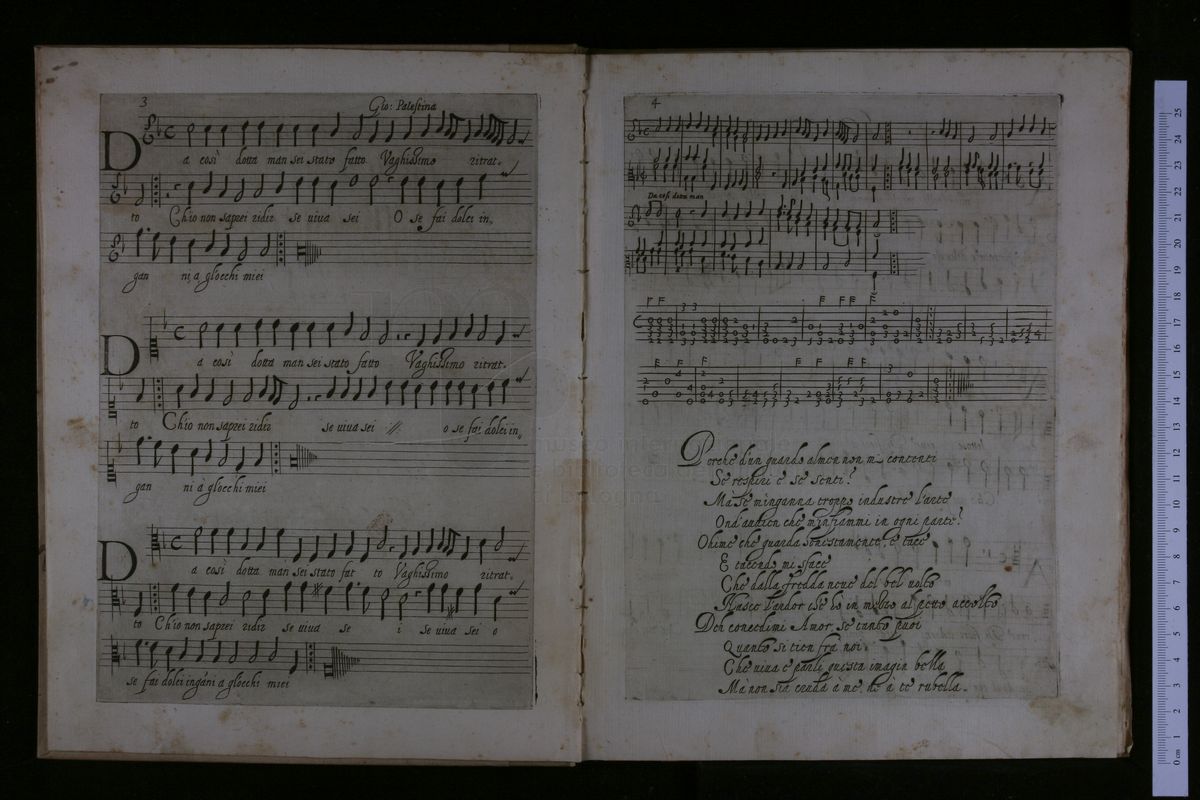 3
Gio: Palestina
Da così dotta man sei stato fatto Vaghissimo ritrat-
to Ch'io non saprei ridir se uiua sei O se fai dolci in-
gan ni, a gl'occhi miei
Da così dotta man sei stato fatto Vaghissimo ritrat-
to Ch'io non saprei ridir se uiua sei o se fai dolci in-
gan ni à gl'occhi miei
Da così dotta man sei stato fat to Vaghissimo ritrat-
to Ch'io non saprei ridir se uiua se i se uiua sei o
se fai dolci ingāni a gl'occhi miei
4
Da cosi dotta man
Perche d'un guardo almen non mi contenti
Se respiri e se senti?
Ma se m'inganna troppo industre l'arte
Ond'auuien che m'infiammi in ogni parte?
Ohime che guarda honestamente, e tace
E tacendo mi sface
Che dalla fredda neue del bel uolto
Nasce l'ardor ch'è hò in mezzo al petto accolto
Deh concedimi Amor, se tanto puoi
Quanto si tien fra noi
Che uiua e parli questa imagin bella
Mà non sia cruda à me, ne à te rubella.